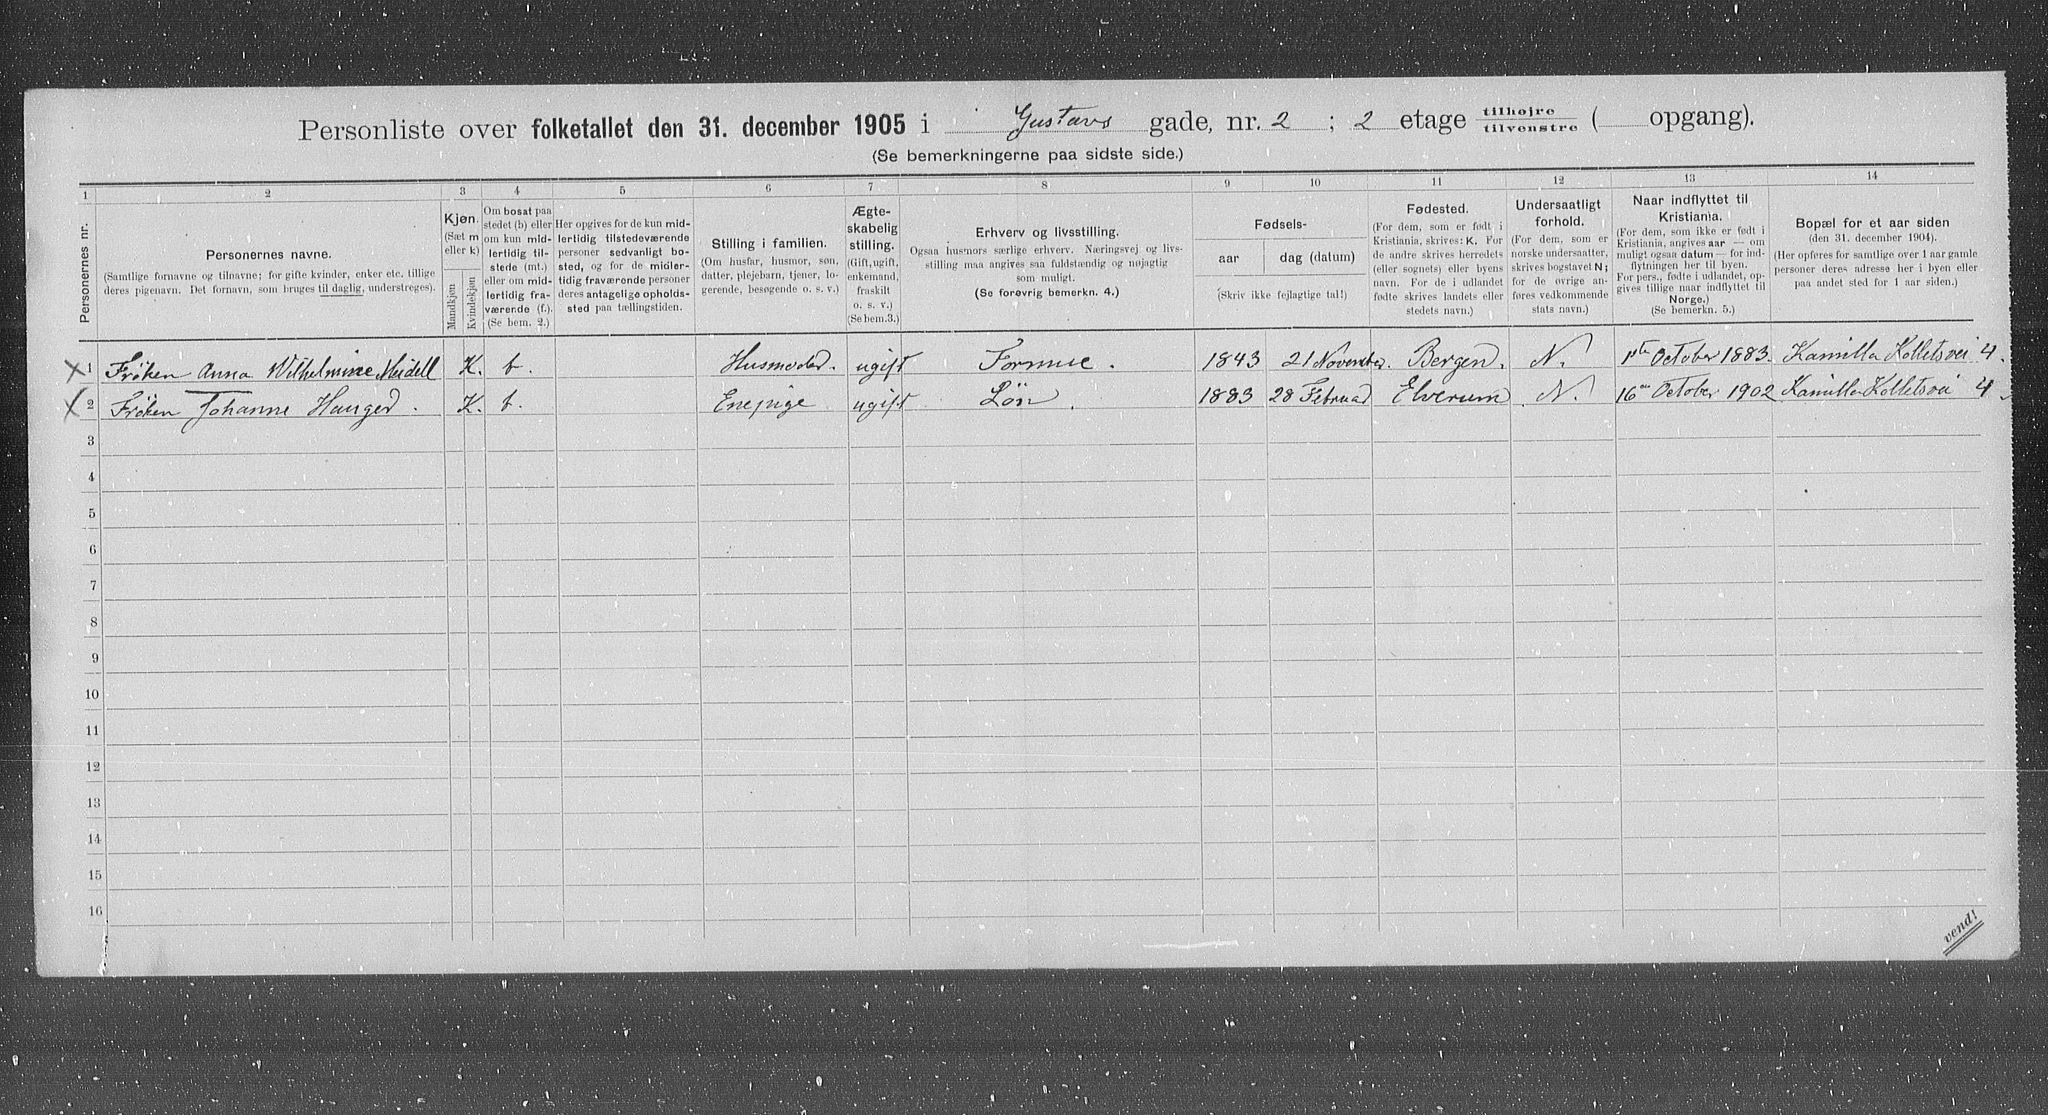 Personliste over folketallet den 31. december 1905 i Gustavs gade, nr. 2 ; 2 etage tilhøjre tilvenstre ( opgang).
(Se bemerkningerne paa sidste side.)
1 2 3 4 5 6 7 8 9 10 11 12 13 14
Personernes nr.
Personernes navne.
(Samtlige fornavne og tilnavne; for gifte kvinder, enker etc. tillige
deres pigenavn. Det fornavn, som bruges til daglig, understreges).
Kjøn.
(Sæt m
eller k)
Mandkjøn
Kvindekjøn
Om bosat paa
stedet (b) eller
om kun mid-
lertidig til-
stede (mt.)
eller om mid-
lertidig fra-
værende (f.).
(Se bem. 2.)
Her opgives for de kun mid-
lertidig tilstedeværende
personer sedvanligt bo-
sted, og for de midler-
tidig fraværende personer
deres antagelige opholds-
sted paa tællingstiden.
Stilling i familien.
(Om husfar, husmor, søn,
datter, plejebarn, tjener, lo-
gerende, besøgende o. s. v.)
Ægte-
skabelig
stilling.
(Gift, ugift,
enkemand,
fraskilt
o. s. v.)
(Se bem.3.)
Erhverv og livsstilling.
Ogsaa husmors særlige erhverv. Næringsvej og livs-
stilling maa angives saa fuldstændig og nøjagtig
som muligt.
(Se forøvrig bemerkn. 4.)
Fødsels-
aar
dag (datum)
(Skriv ikke fejlagtige tal!)
Fødested.
(For dem, som er født i
Kristiania, skrives: K. For
de andre skrives herredets
(eller sognets) eller byens
navn. For de i udlandet
fødte skrives landets eller
stedets navn.)
Undersaatligt
forhold.
(For dem, som er
norske undersaatter,
skrives bogstavet N;
for de øvrige an-
føres vedkommende
stats navn.)
Naar indflyttet til
Kristiania.
(For dem, som ikke er født i
Kristiania, angives aar — om
muligt ogsaa datum — for ind-
flytningen her til byen.
For pers., fødte i udlandet, op-
gives tillige naar indflyttet til
Norge.)
(Se bemerkn. 5.)
Bopæl for et aar siden
(den 31. december 1904).
(Her opføres for samtlige over 1 aar gamle
personer deres adresse her i byen eller
paa andet sted for 1 aar siden.)
1 Frøken Anna Wilhelmine Meidell K. b. Husmoder. ugift Formue. 1843 21 November. Bergen. N. 1ste October 1883. Kamilla Kolletsvei 4.
2 Frøken Johanne Hanged. K. b. Enepige ugift Løn. 1883 28 Februar Elverum N. 16de October 1902 Kamilla Kolletsvei 4.
3
4
5
6
7
8
9
10
11
12
13
14
15
16
vend!